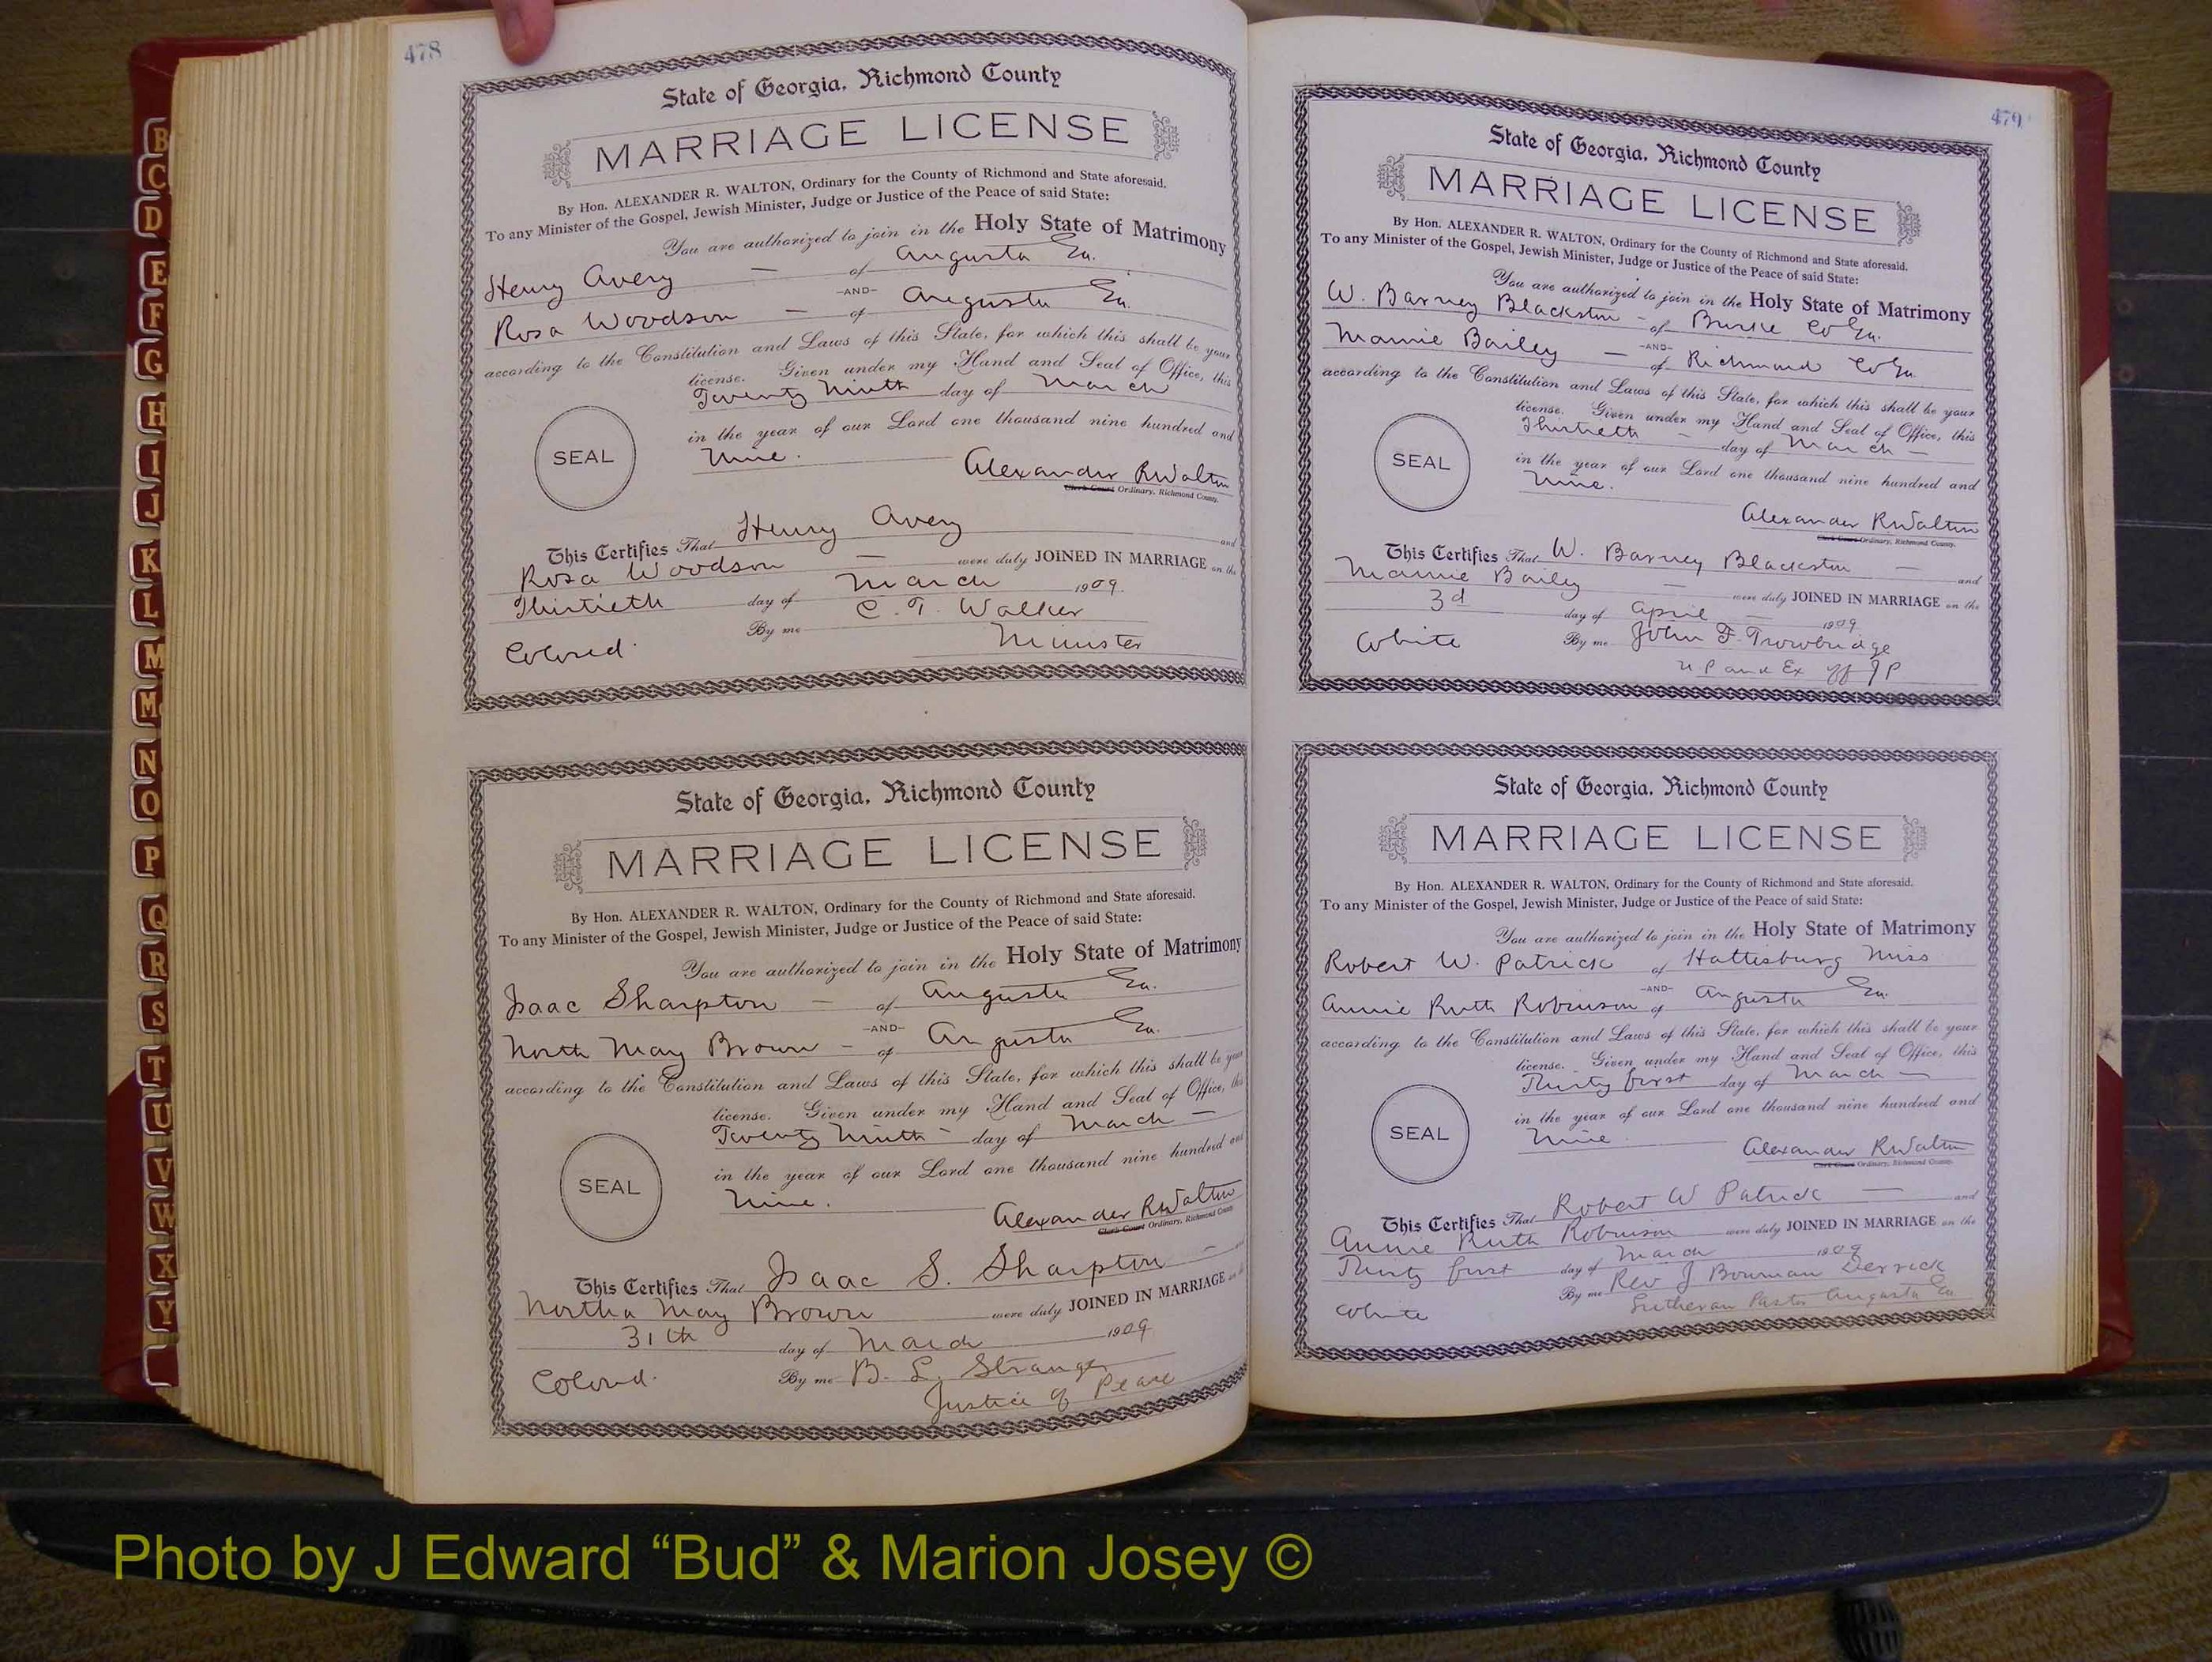 478
State of Georgia, Richmond County
MARRIAGE LICENSE
By Hon. ALEXANDER R. WALTON, Ordinary for the County of Richmond and State aforesaid.
To any Minister of the Gospel, Jewish Minister, Judge or Justice of the Peace of said State:
You are authorized to join in the Holy State of Matrimony
Henry Avery — of Augusta Ga.
-AND-
Rosa Woodson — of Augusta Ga.
according to the Constitution and Laws of this State, for which this shall be your
license. Given under my Hand and Seal of Office, this
Twenty Ninth day of March
in the year of our Lord one thousand nine hundred and
SEAL
Nine.
Alexander R Walton
Clerk Court Ordinary, Richmond County.
This Certifies That Henry Avery and
Rosa Woodson — were duly JOINED IN MARRIAGE on the
Thirtieth day of March 1909.
By me C. T. Walker
Colored. Minister
State of Georgia, Richmond County
MARRIAGE LICENSE
By Hon. ALEXANDER R. WALTON, Ordinary for the County of Richmond and State aforesaid.
To any Minister of the Gospel, Jewish Minister, Judge or Justice of the Peace of said State:
You are authorized to join in the Holy State of Matrimony
Isaac Sharpton — of Augusta Ga.
-AND-
North May Brown — of Augusta Ga.
according to the Constitution and Laws of this State, for which this shall be your
license. Given under my Hand and Seal of Office, this
Twenty Ninth — day of March —
in the year of our Lord one thousand nine hundred and
SEAL
Nine.
Alexander R Walton
Clerk Court Ordinary, Richmond County
This Certifies That Isaac S. Sharpton —
Northa May Brown were duly JOINED IN MARRIAGE
31th day of March 1909
Colored. By me B. L. Strange
Justice of Peace
479
State of Georgia, Richmond County
MARRIAGE LICENSE
By Hon. ALEXANDER R. WALTON, Ordinary for the County of Richmond and State aforesaid.
To any Minister of the Gospel, Jewish Minister, Judge or Justice of the Peace of said State:
You are authorized to join in the Holy State of Matrimony
W. Barney Blackston — of Burke Co Ga.
-AND-
Mamie Bailey — of Richmond Co Ga
according to the Constitution and Laws of this State, for which this shall be your
license. Given under my Hand and Seal of Office, this
Thirtieth — day of March —
in the year of our Lord one thousand nine hundred and
SEAL
Nine.
Alexander R Walton
Clerk Court Ordinary, Richmond County.
This Certifies That W. Barney Blackston — and
Mamie Bailey — were duly JOINED IN MARRIAGE on the
3d day of April 1909
White By me John F. Trowbridge
N P and Ex off J P
State of Georgia, Richmond County
MARRIAGE LICENSE
By Hon. ALEXANDER R. WALTON, Ordinary for the County of Richmond and State aforesaid.
To any Minister of the Gospel, Jewish Minister, Judge or Justice of the Peace of said State:
You are authorized to join in the Holy State of Matrimony
Robert W. Patrick of Hattisburg Miss
-AND-
Annie Ruth Robinson of Augusta Ga.
according to the Constitution and Laws of this State, for which this shall be your
license. Given under my Hand and Seal of Office, this
Thirty first day of March —
in the year of our Lord one thousand nine hundred and
SEAL
Nine.
Alexander R Walton
Clerk Court Ordinary, Richmond County.
This Certifies That Robert W Patrick — and
Annie Ruth Robinson were duly JOINED IN MARRIAGE on the
Thirty first day of March 1909
By me Rev J. Bowman Derrick
White Lutheran Pastor Augusta Ga
B
C
D
E
F
G
H
I
J
K
L
M
M
N
O
P
Q
R
S
T
U
V
W
X
Y
Photo by J Edward “Bud” & Marion Josey ©